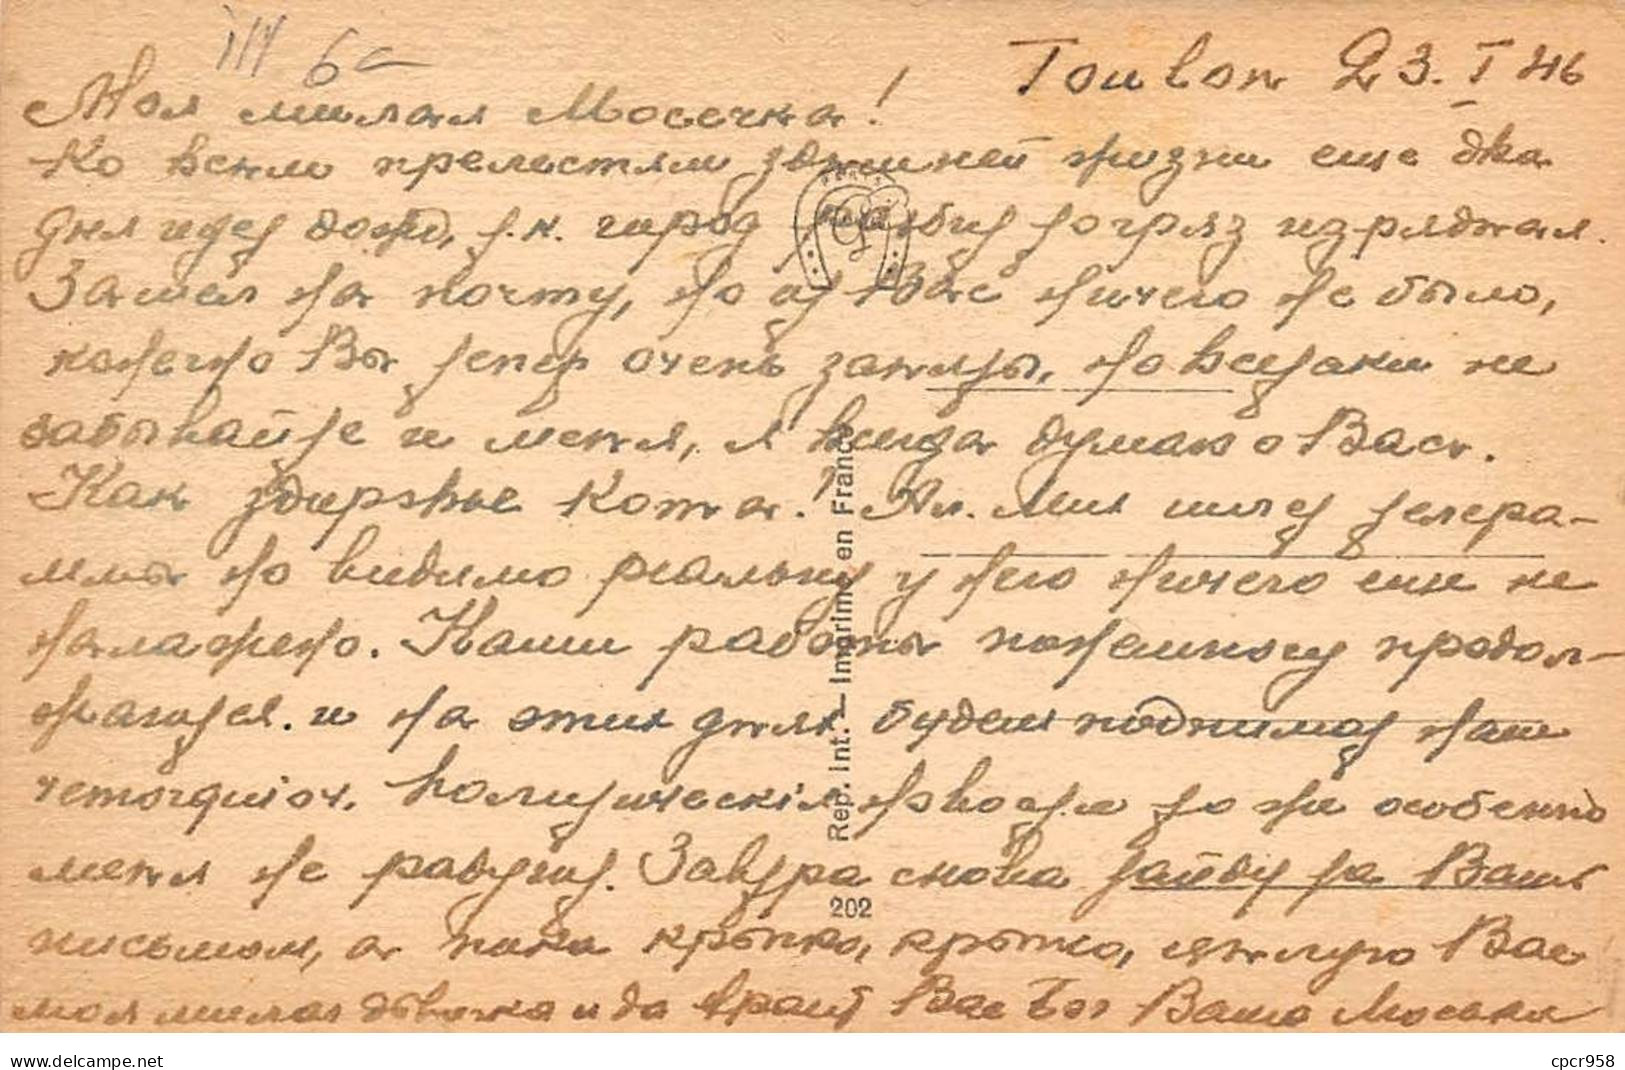 Toulon 23. I 46
Моя милая Мосечка!
Ко всем прелестям здешней жизни еще два
дня идет дождь, т.к. город грязь изрядная.
Зашел на почту, но от Вас ничего не было,
конечно Вы теперь очень заняты, но всетаки не
забывайте и меня, я всегда думаю о Вас.
Как здоровье Кота? Ал. Мих. шлет телегра-
ммы но видимо реально у него ничего еще не
налажено. Наши работы понемногу продол-
жаются. и на этих днях будем поднимать наш
четырех. Политическия новости то же особенно
меня не радуют. Завтра снова зайду за Ваш
письмом, а пока крѣпко, крѣпко, цѣлую Вас
моя милая дѣвочка и да хранит Вас Бог Ваш Моська
Rep. Int. — Imprimé en France
202
cpcr958
My ebay